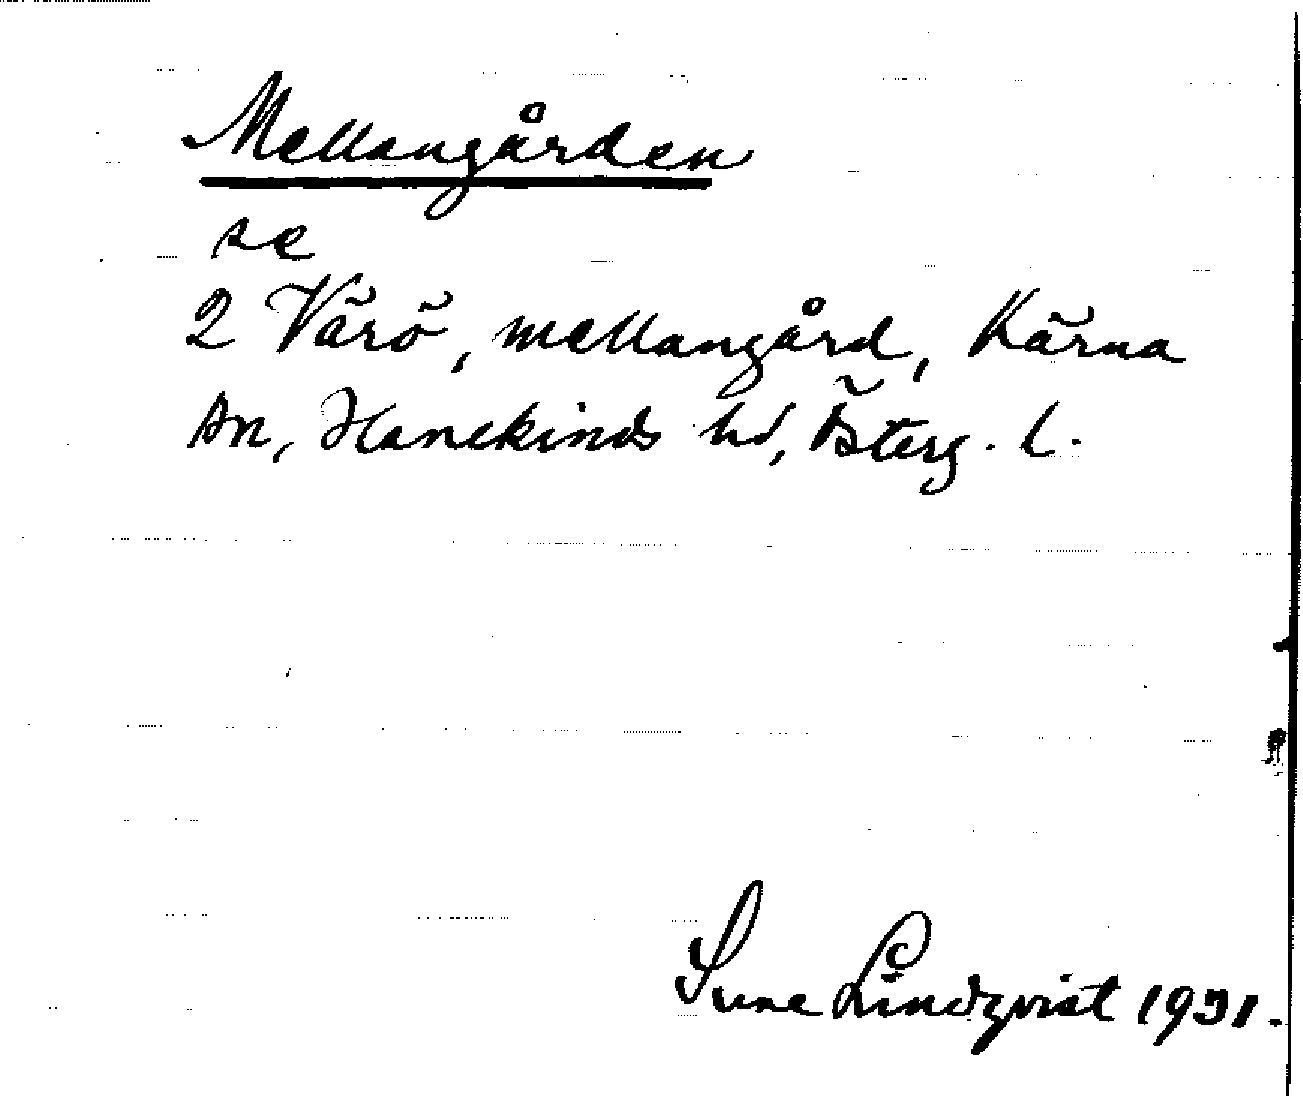 Mellangården
se
2 Värö, mellangård, Kärna
sn, Hanekinds hd, Österg. l.
Sune Lindqvist 1931.